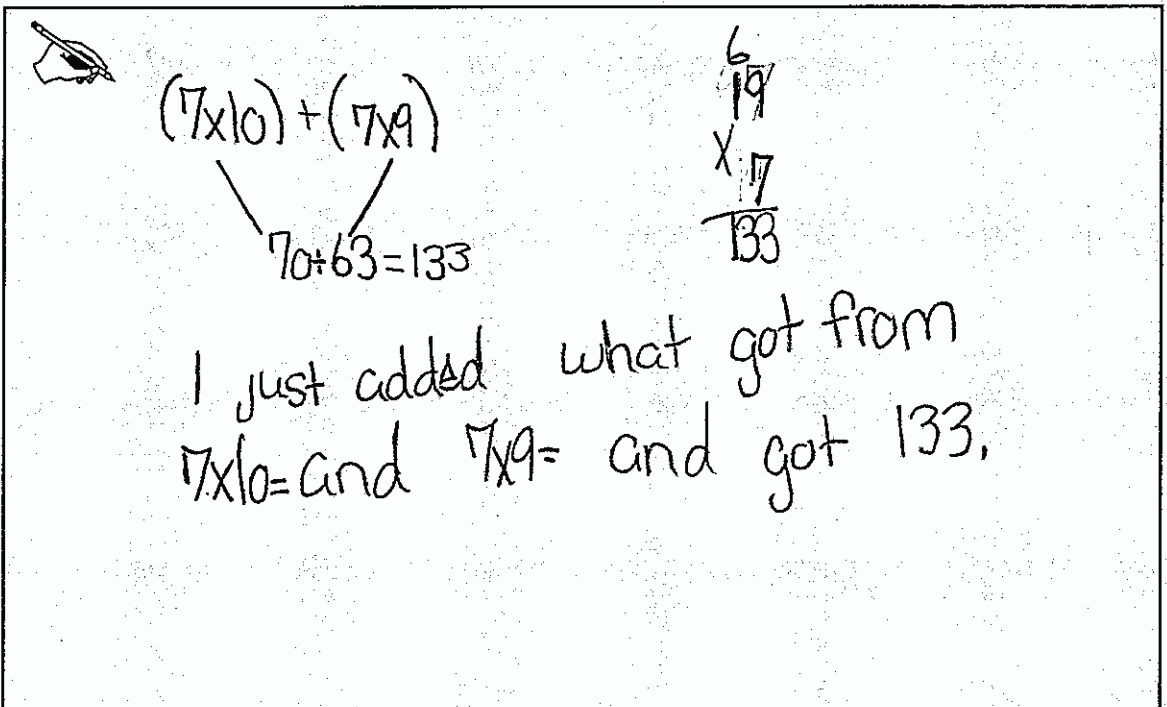 (7x10)+(7x9)
70+63=133
6
19
x 7
133
I just added what got from
7x10= and 7x9= and got 133.